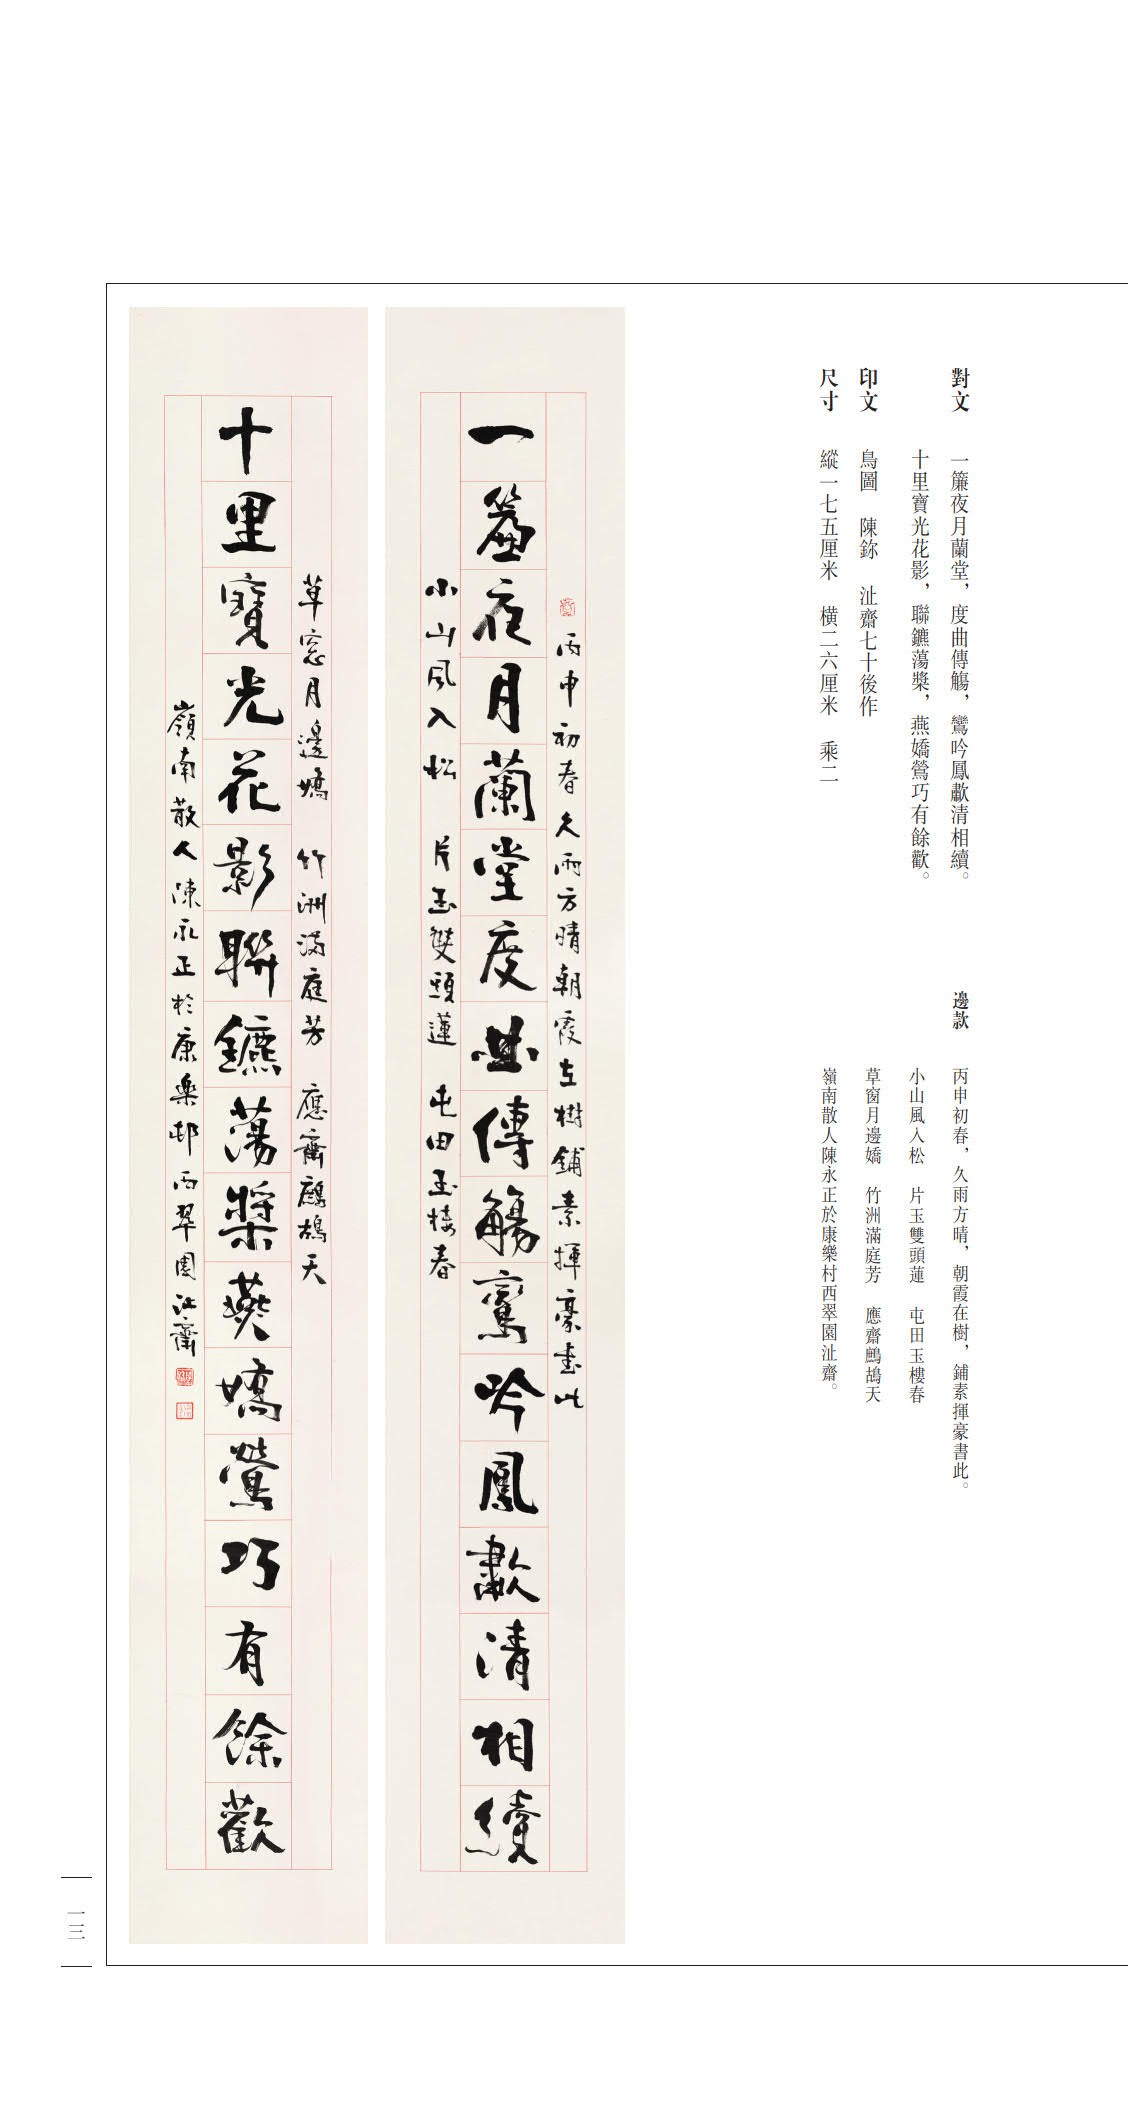 對文　一簾夜月蘭堂，度曲傳觴，鸞吟鳳歗清相續。
十里寶光花影，聯鑣蕩槳，燕嬌鶯巧有餘歡。
印文　鳥圖　陳鉨　沚齋七十後作
尺寸　縱一七五厘米　橫二六厘米　乘二
邊款　丙申初春，久雨方晴，朝霞在樹，鋪素揮豪書此。
小山風入松　片玉雙頭蓮　屯田玉樓春
草窗月邊嬌　竹洲滿庭芳　應齋鷓鴣天
嶺南散人陳永正於康樂村西翠園沚齋。
丙申初春久雨方晴朝霞在樹鋪素揮豪書此
一簾夜月蘭堂度曲傳觴鸞吟鳳歗清相續
小山風入松　片玉雙頭蓮　屯田玉樓春
草窓月邊嬌　竹洲滿庭芳　應齋鷓鴣天
十里寶光花影聯鑣蕩槳燕嬌鶯巧有餘歡
嶺南散人陳永正於康樂邨西翠園沚齋
一三